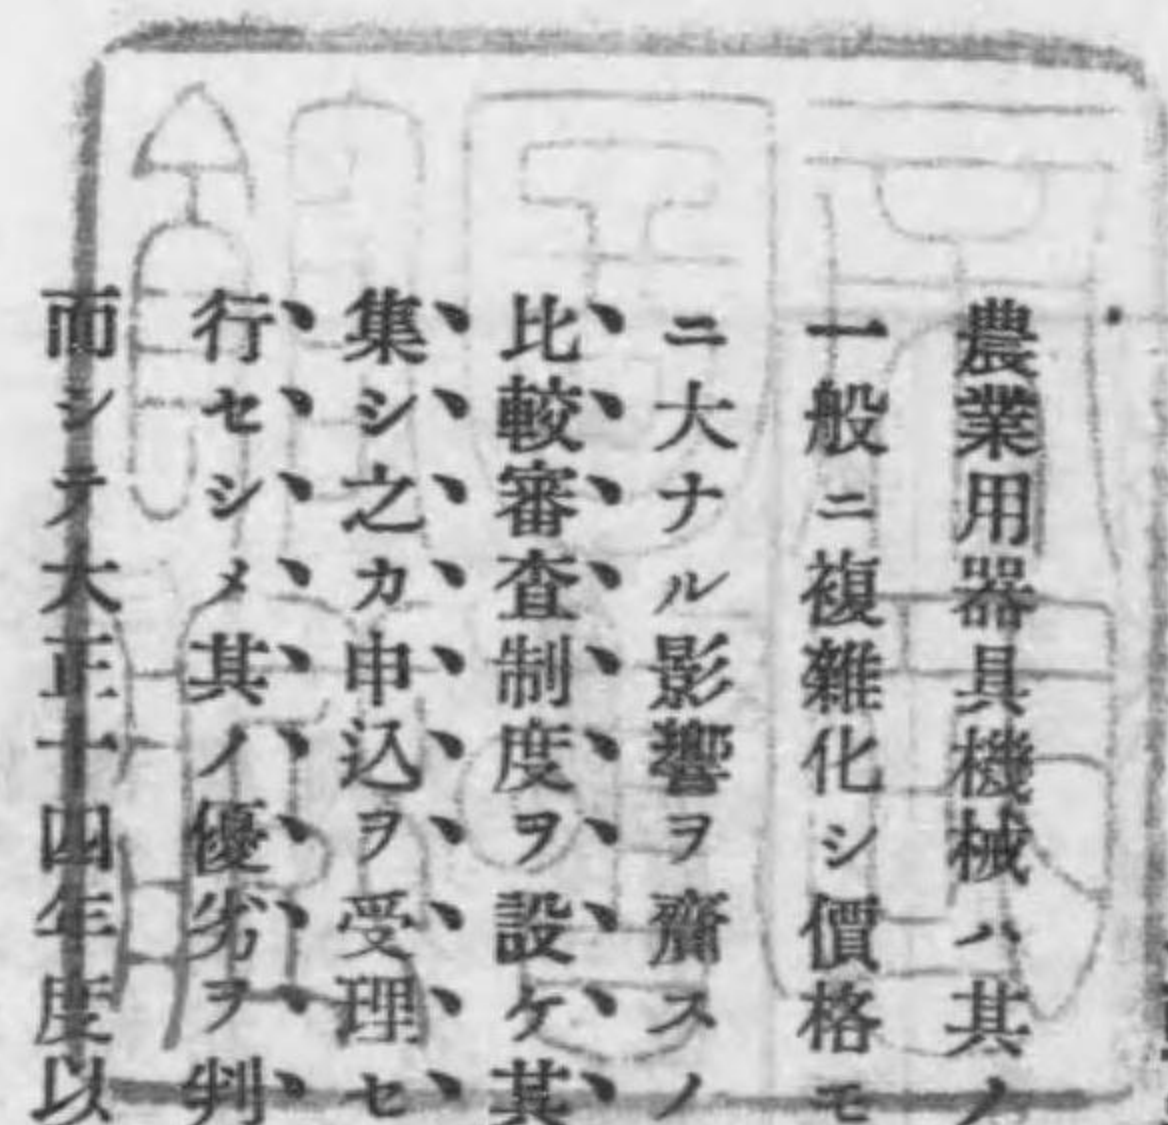 農業用器具機械ハ其ノ
一般ニ複雜化シ價格モ
ニ大ナル影響ヲ齎スノ
比較審査制度ヲ設ケ其
集シ之カ申込ヲ受理セ
行セシメ其ノ優劣ヲ判
而シテ大正十四年度以